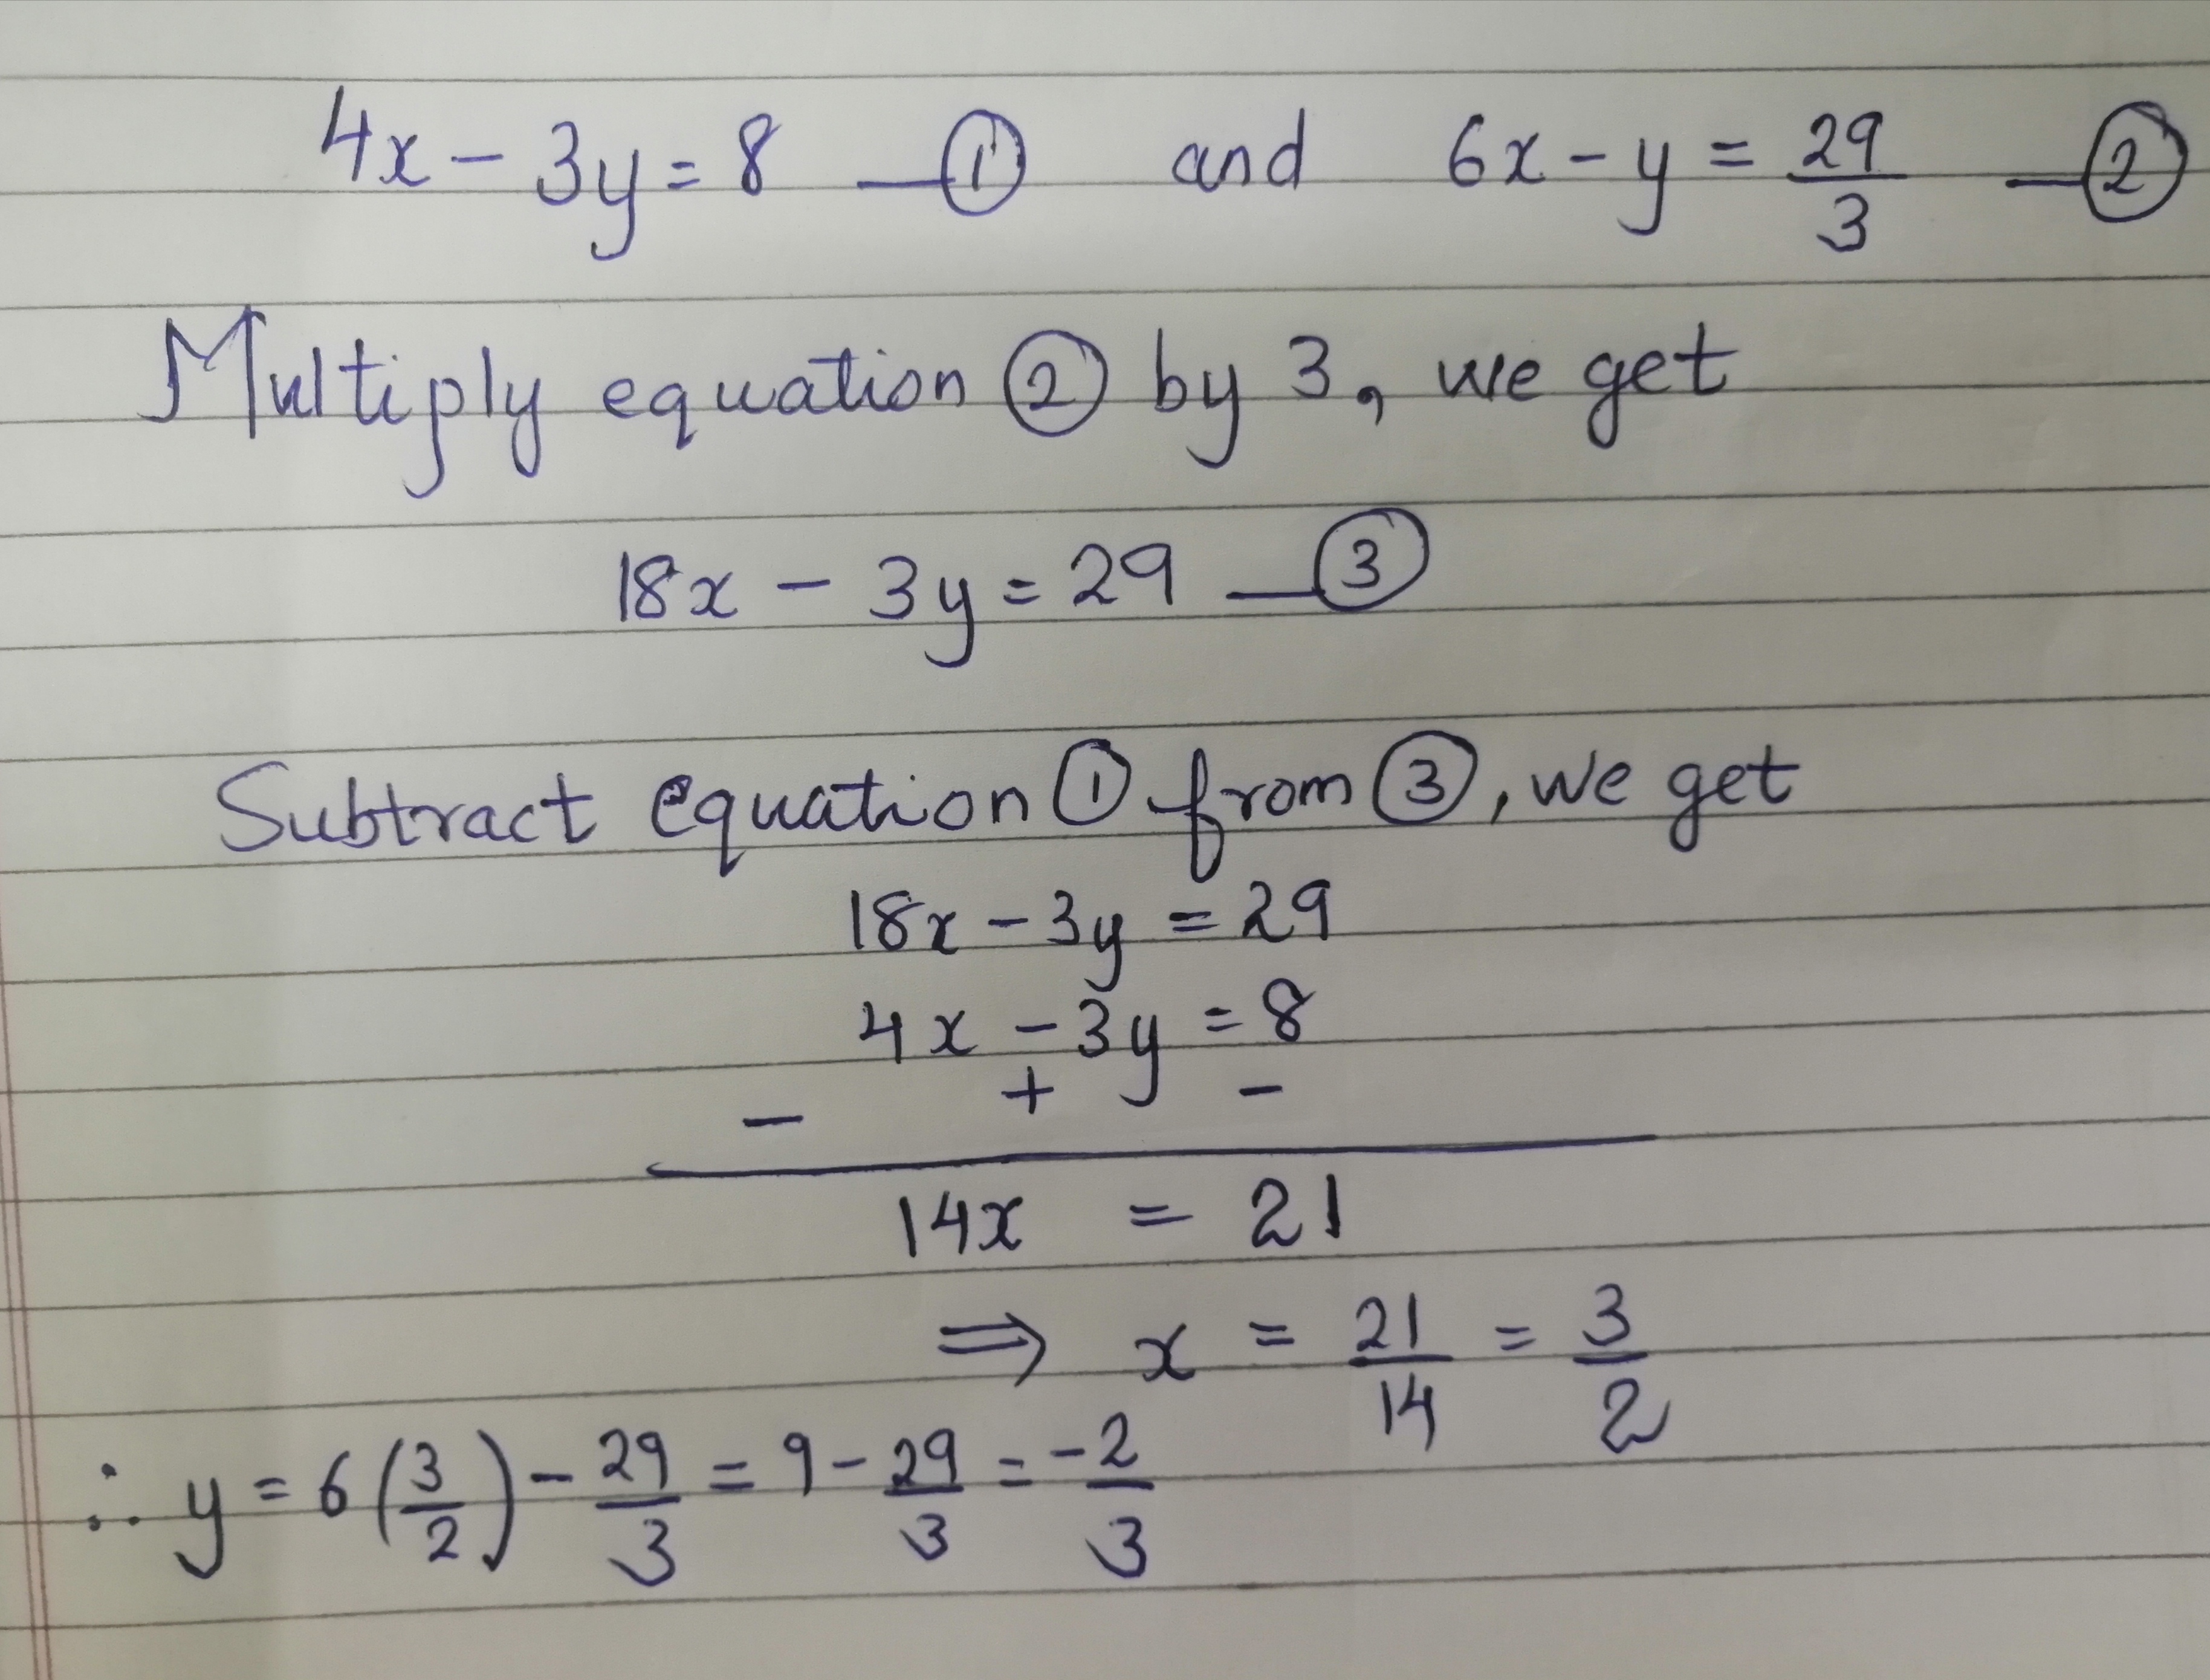 4x - 3y = 8 — ① and 6x - y = 29/3 — ②
Multiply equation ② by 3, we get
18x - 3y = 29 — ③
Subtract equation ① from ③, we get
18x - 3y = 29
4x - 3y = 8
- + -
14x = 21
⇒ x = 21/14 = 3/2
∴ y = 6(3/2) - 29/3 = 9 - 29/3 = -2/3